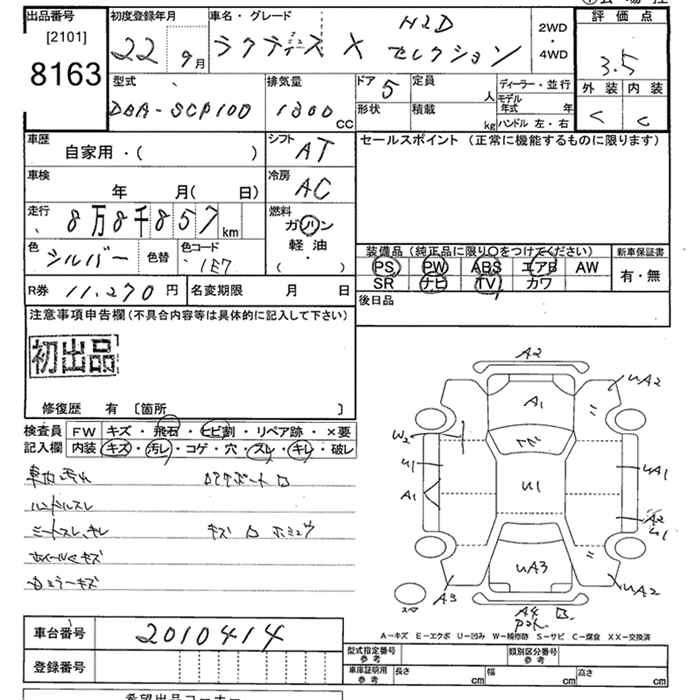 出品番号 初度登録年月 車名・グレード 評価点
[2101] H2D 2WD
8163 22 9月 ラクティス X セレクション ・ 4WD 3.5
外装 内装
C C
型式 排気量 ドア 定員 ディーラー・並行
DBA-SCP100 1300 CC 5 人 モデル年式 年
形状 積載 kg ハンドル 左・右
車歴 シフト セールスポイント (正常に機能するものに限ります)
自家用・( ) AT
車検 冷房
年 月( 日) AC
走行 燃料
8万8千857 km ガソリン
軽油
( )
色 シルバー 色替 色コード 1E7
装備品 (純正品に限り○をつけてください) 新車保証書
PS PW ABS エアB AW 有・無
SR ナビ TV カワ
R券 11.270円 名変期限 月 日 後日品
注意事項申告欄(不具合内容等は具体的に記入して下さい)
初出品
修復歴 有 〔箇所 〕
検査員 FW キズ・飛石・ヒビ割・リペア跡・×要
記入欄 内装 キズ・汚レ・コゲ・穴・スレ・キレ・破レ
車内汚れ
ハンドルスレ
シートスレ、キレ キズ
ホイールキズ
ミラーキズ
A2
A1 UA2
W2
U1 U1 UA1
A1 A2
U1
UA3 UA2
A3 A4
スペ
A-キズ E-エクボ U-凹み W-補修跡 S-サビ C-腐食 XX-交換済
車台番号 2010414
型式指定番号 参考 類別区分番号 参考
登録番号 車庫証明用 参考 長さ cm 幅 cm 高さ cm
希望出品コーナー